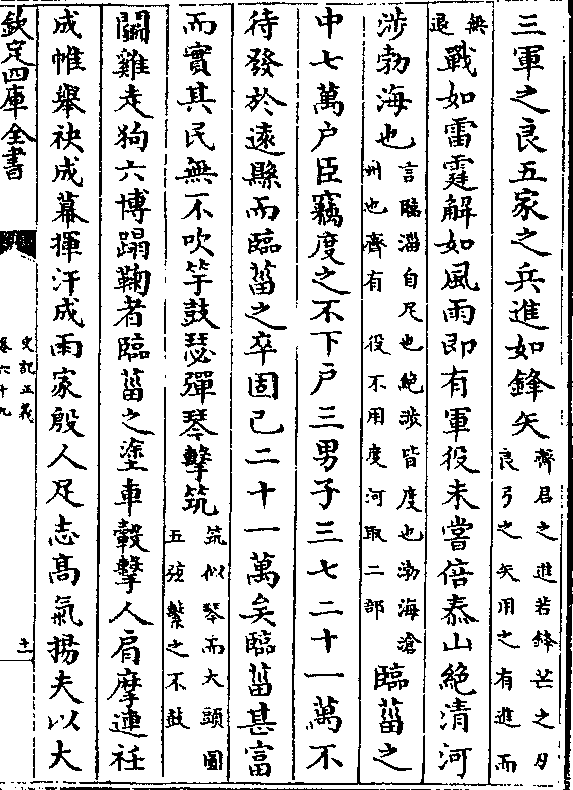 三軍之良五家之兵進如鋒矢齊君之進若鋒芒之刀良弓之矢用之有進而
無退戰如雷霆解如風雨即有軍役未嘗倍泰山絶清河
涉勃海也言臨淄自足也絶涉皆度也渤海滄州也齊有役不用度河取二部臨菑之
中七萬户臣竊度之不下户三男子三七二十一萬不
待發於遠縣而臨菑之卒固已二十一萬矣臨菑甚富
而實其民無不吹竽鼓瑟彈琴擊筑筑似琴而大頭圓五弦擊之不鼓
鬭雞走狗六博蹋鞠者臨菑之塗車轂擊人肩摩連衽
成帷舉袂成幕揮汗成雨家殷人足志髙氣揚夫以大
欽定四庫全書
史記正義
卷六十九
十一